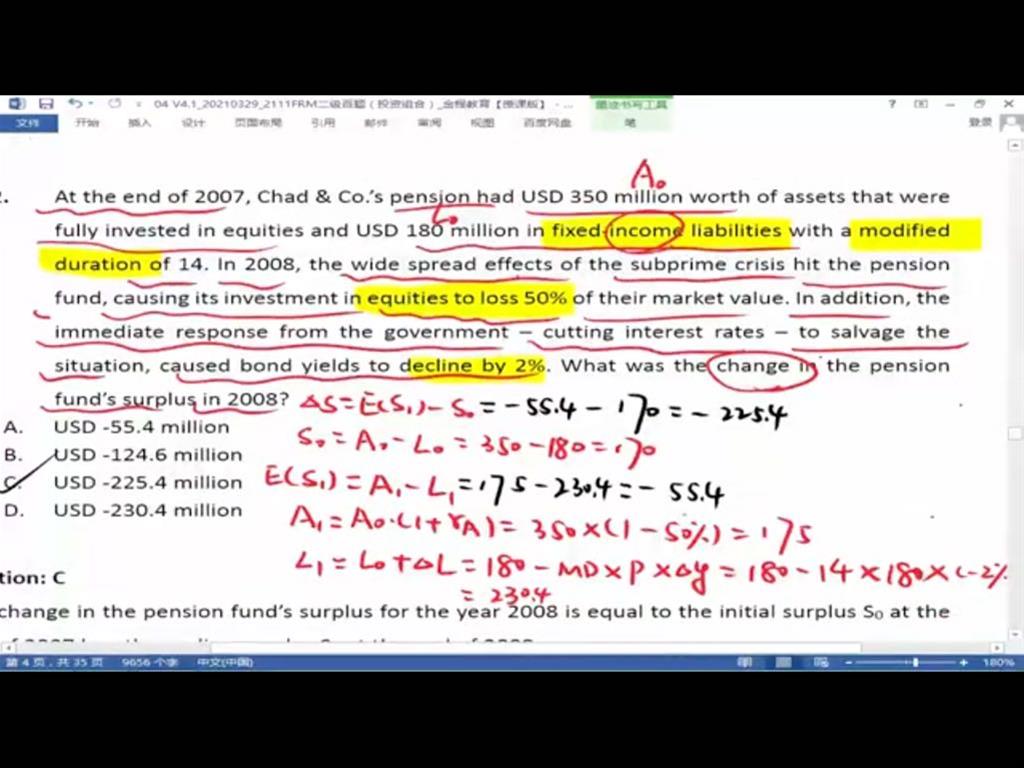 04 V4.1_20210329_2111FRM二级百题（投资组合）_金程教育【授课版】 - ...
墨迹书写工具
文件 开始 插入 设计 页面布局 引用 邮件 审阅 视图 百度网盘 笔 登录
A₀
At the end of 2007, Chad & Co.'s pension had USD 350 million worth of assets that were
L₀
fully invested in equities and USD 180 million in fixed-income liabilities with a modified
duration of 14. In 2008, the wide spread effects of the subprime crisis hit the pension
fund, causing its investment in equities to loss 50% of their market value. In addition, the
immediate response from the government – cutting interest rates – to salvage the
situation, caused bond yields to decline by 2%. What was the change in the pension
fund's surplus in 2008? ΔS=E(S₁)-S₀=-55.4-170=-225.4
A. USD -55.4 million
S₀=A₀-L₀=350-180=170
B. USD -124.6 million
C. USD -225.4 million
E(S₁)=A₁-L₁=175-230.4=-55.4
D. USD -230.4 million
A₁=A₀·(1+rA)=350×(1-50%)=175
L₁=L₀+ΔL=180-MD×P×Δy=180-14×180×(-2%
=230.4
tion: C
change in the pension fund's surplus for the year 2008 is equal to the initial surplus S₀ at the
第 4 页，共 35 页 9656 个字 中文(中国) 180%